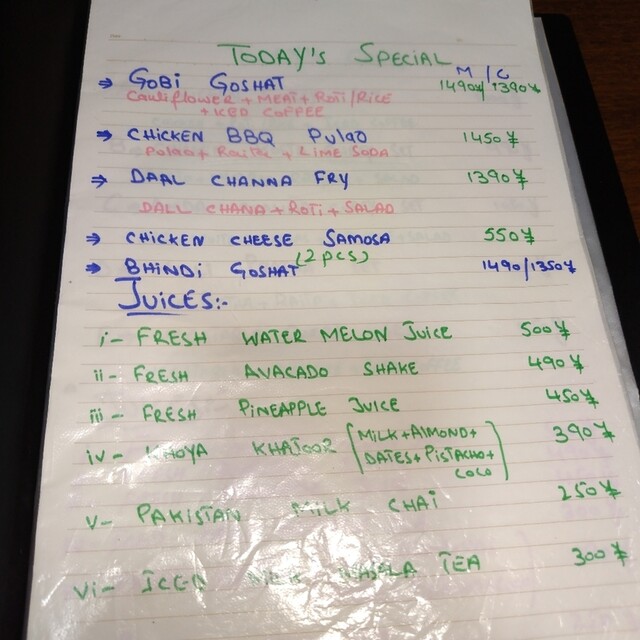 TODAY'S SPECIAL
M / C
⇒ GOBI GOSHAT 1490¥/1390¥
Cauliflower + MEAT + ROTI/RICE
+ ICED COFFEE
⇒ CHICKEN BBQ Pulao 1450¥
Polao + Raita + LIME SODA
⇒ DAAL CHANNA FRY 1390¥
DALL CHANA + ROTI + SALAD
⇒ CHICKEN CHEESE SAMOSA 550¥
(2 pcs)
⇒ BHINDI GOSHAT 1490/1350¥
JUICES:-
i- FRESH WATER MELON JUICE 500¥
ii- FRESH AVACADO SHAKE 490¥
iii- FRESH PINEAPPLE JUICE 450¥
iv- KHOYA KHAJOOR [MILK+ALMOND+ 390¥
DATES+PISTACHO+
COCO]
v- PAKISTAN MILK CHAI 250¥
vi- ICED MASALA TEA 300¥